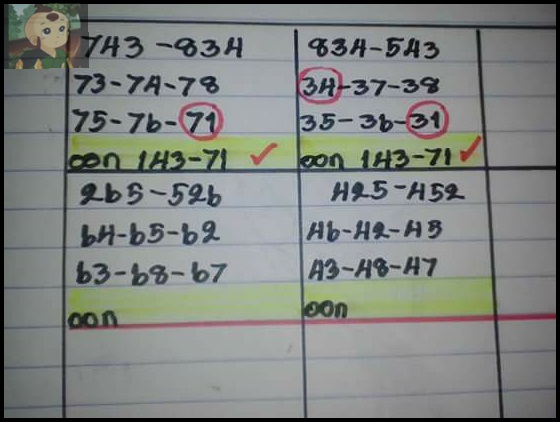 743 -834
73-74-78
75-76-71
ออก 143-71
834-543
34-37-38
35-36-31
ออก 143-71
265-526
64-65-62
63-68-67
ออก
425-452
46-42-45
43-48-47
ออก